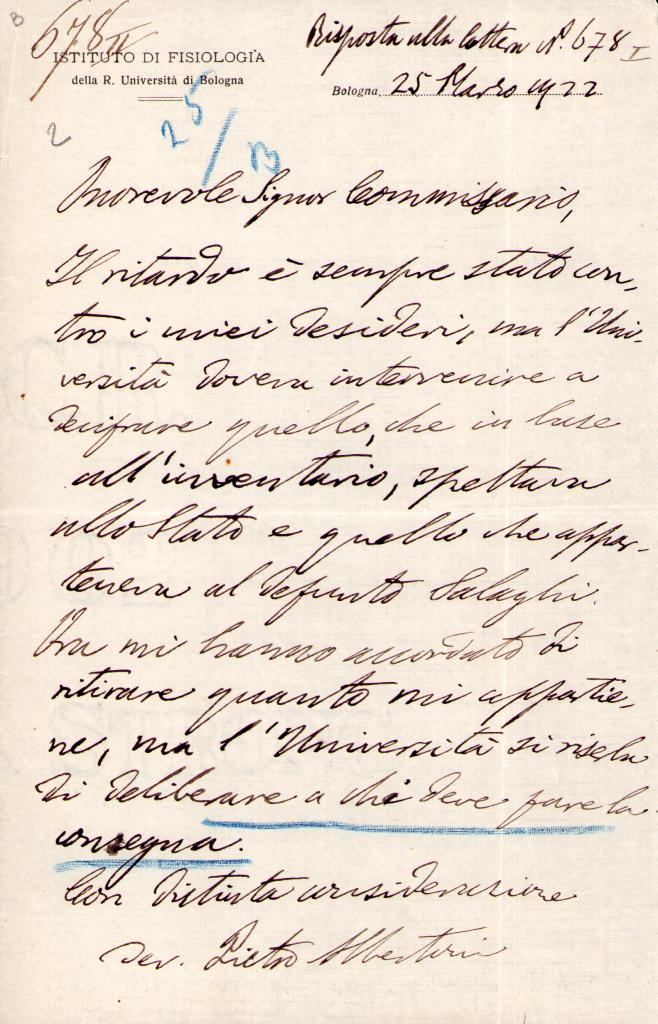 B
678 II
Risposta alla lettera N. 678 I
ISTITUTO DI FISIOLOGIA
della R. Università di Bologna
Bologna, 25 Marzo 1922
2
25/
Onorevole Signor Commissario,
Il ritardo è sempre stato con-
tro i miei desideri, ma l'Uni-
versità doveva intervenire a
decifrare quello, che in base
all'inventario, spettava
allo Stato e quello che appar-
teneva al defunto Salaghi.
Ora mi hanno accordato di
ritirare quanto mi appartie-
ne, ma l'Università si riserba
di deliberare a chi deve fare la
consegna.
Con distinta considerazione
Dev. Pietro Albertoni